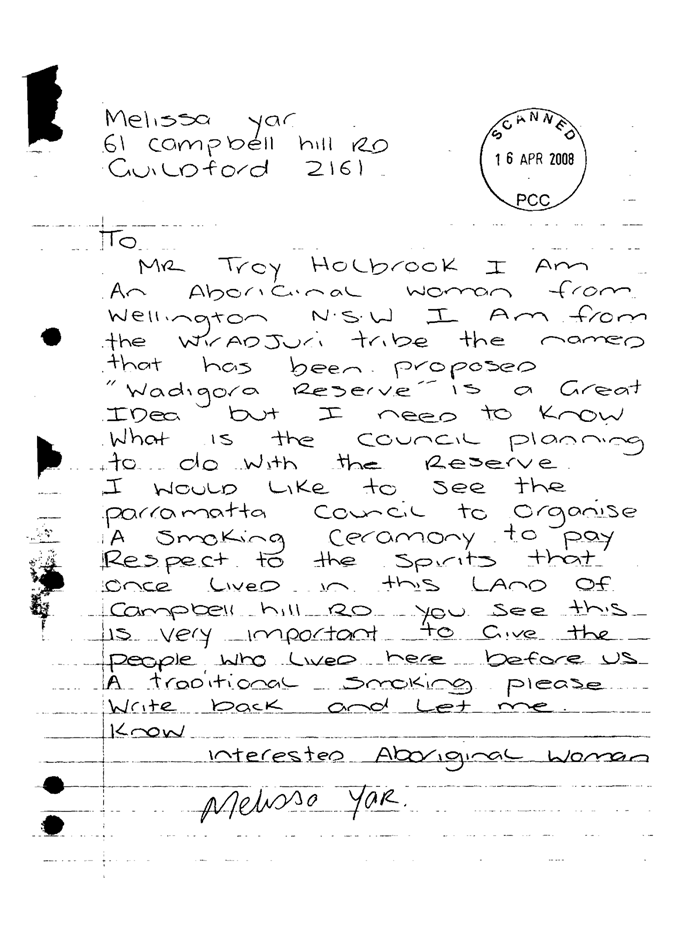 Melissa yar
61 campbell hill RD
GuiLDford 2161
SCANNED
16 APR 2008
PCC
To
MR Troy HoLbrook I Am
An AboriGinaL woman from
Wellington N.S.W I Am from
the WirADJuri tribe the named
that has been proposed
"Wadigora Reserve" is a Great
IDea but I need to Know
What is the councIL planning
to do with the Reserve.
I WouLD Like to see the
parramatta counciL to organise
A Smoking Ceramony to pay
Respect to the Spirits that
once Lived in this LAnD Of
Campbell hill RD you see this
is very important to Give the
people who Lived here before us
A traditionaL Smoking please
Write back and Let me.
Know
interested AboriginaL woman
Melissa YAR.